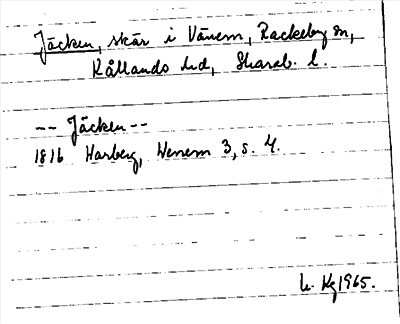 Jäcken, skär i Vänern, Rackeby sn,
Kållands hd, Skarab. l.
-- Jäcken --
1816 Harberg, Wenern 3, s. 4.
1965.